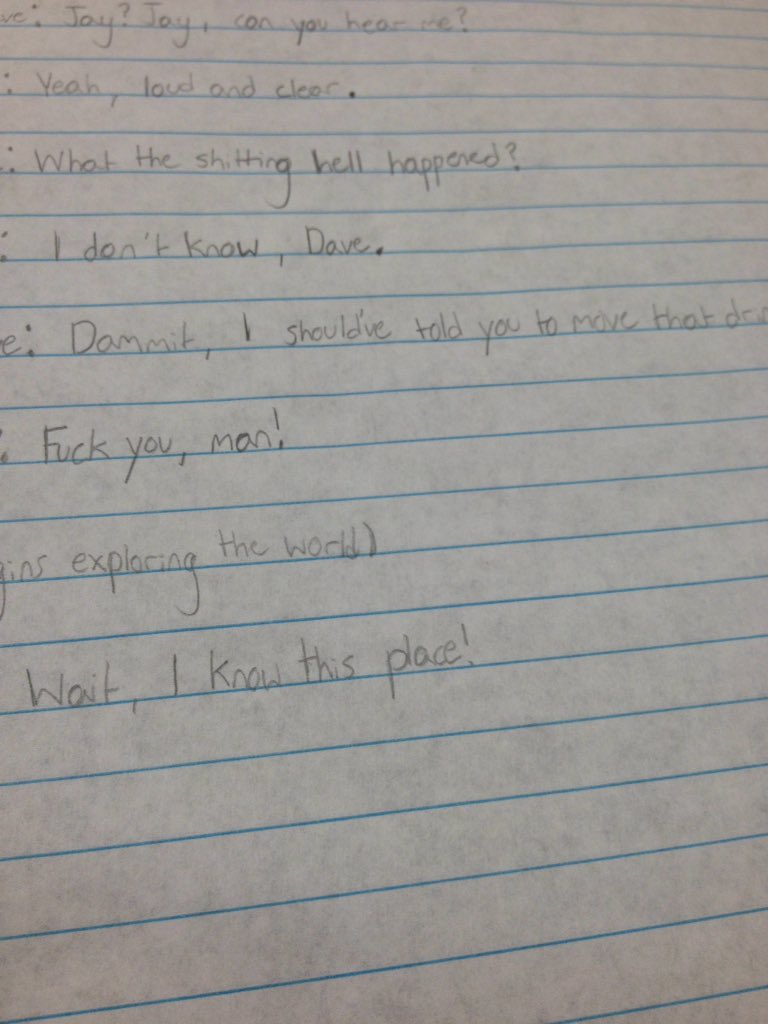 ve: Jay? Jay, can you hear me?
: Yeah, loud and clear.
: What the shitting hell happened?
: I don't know, Dave.
e: Dammit, I should've told you to move that
: Fuck you, man!
gins exploring the world)
Wait, I know this place!